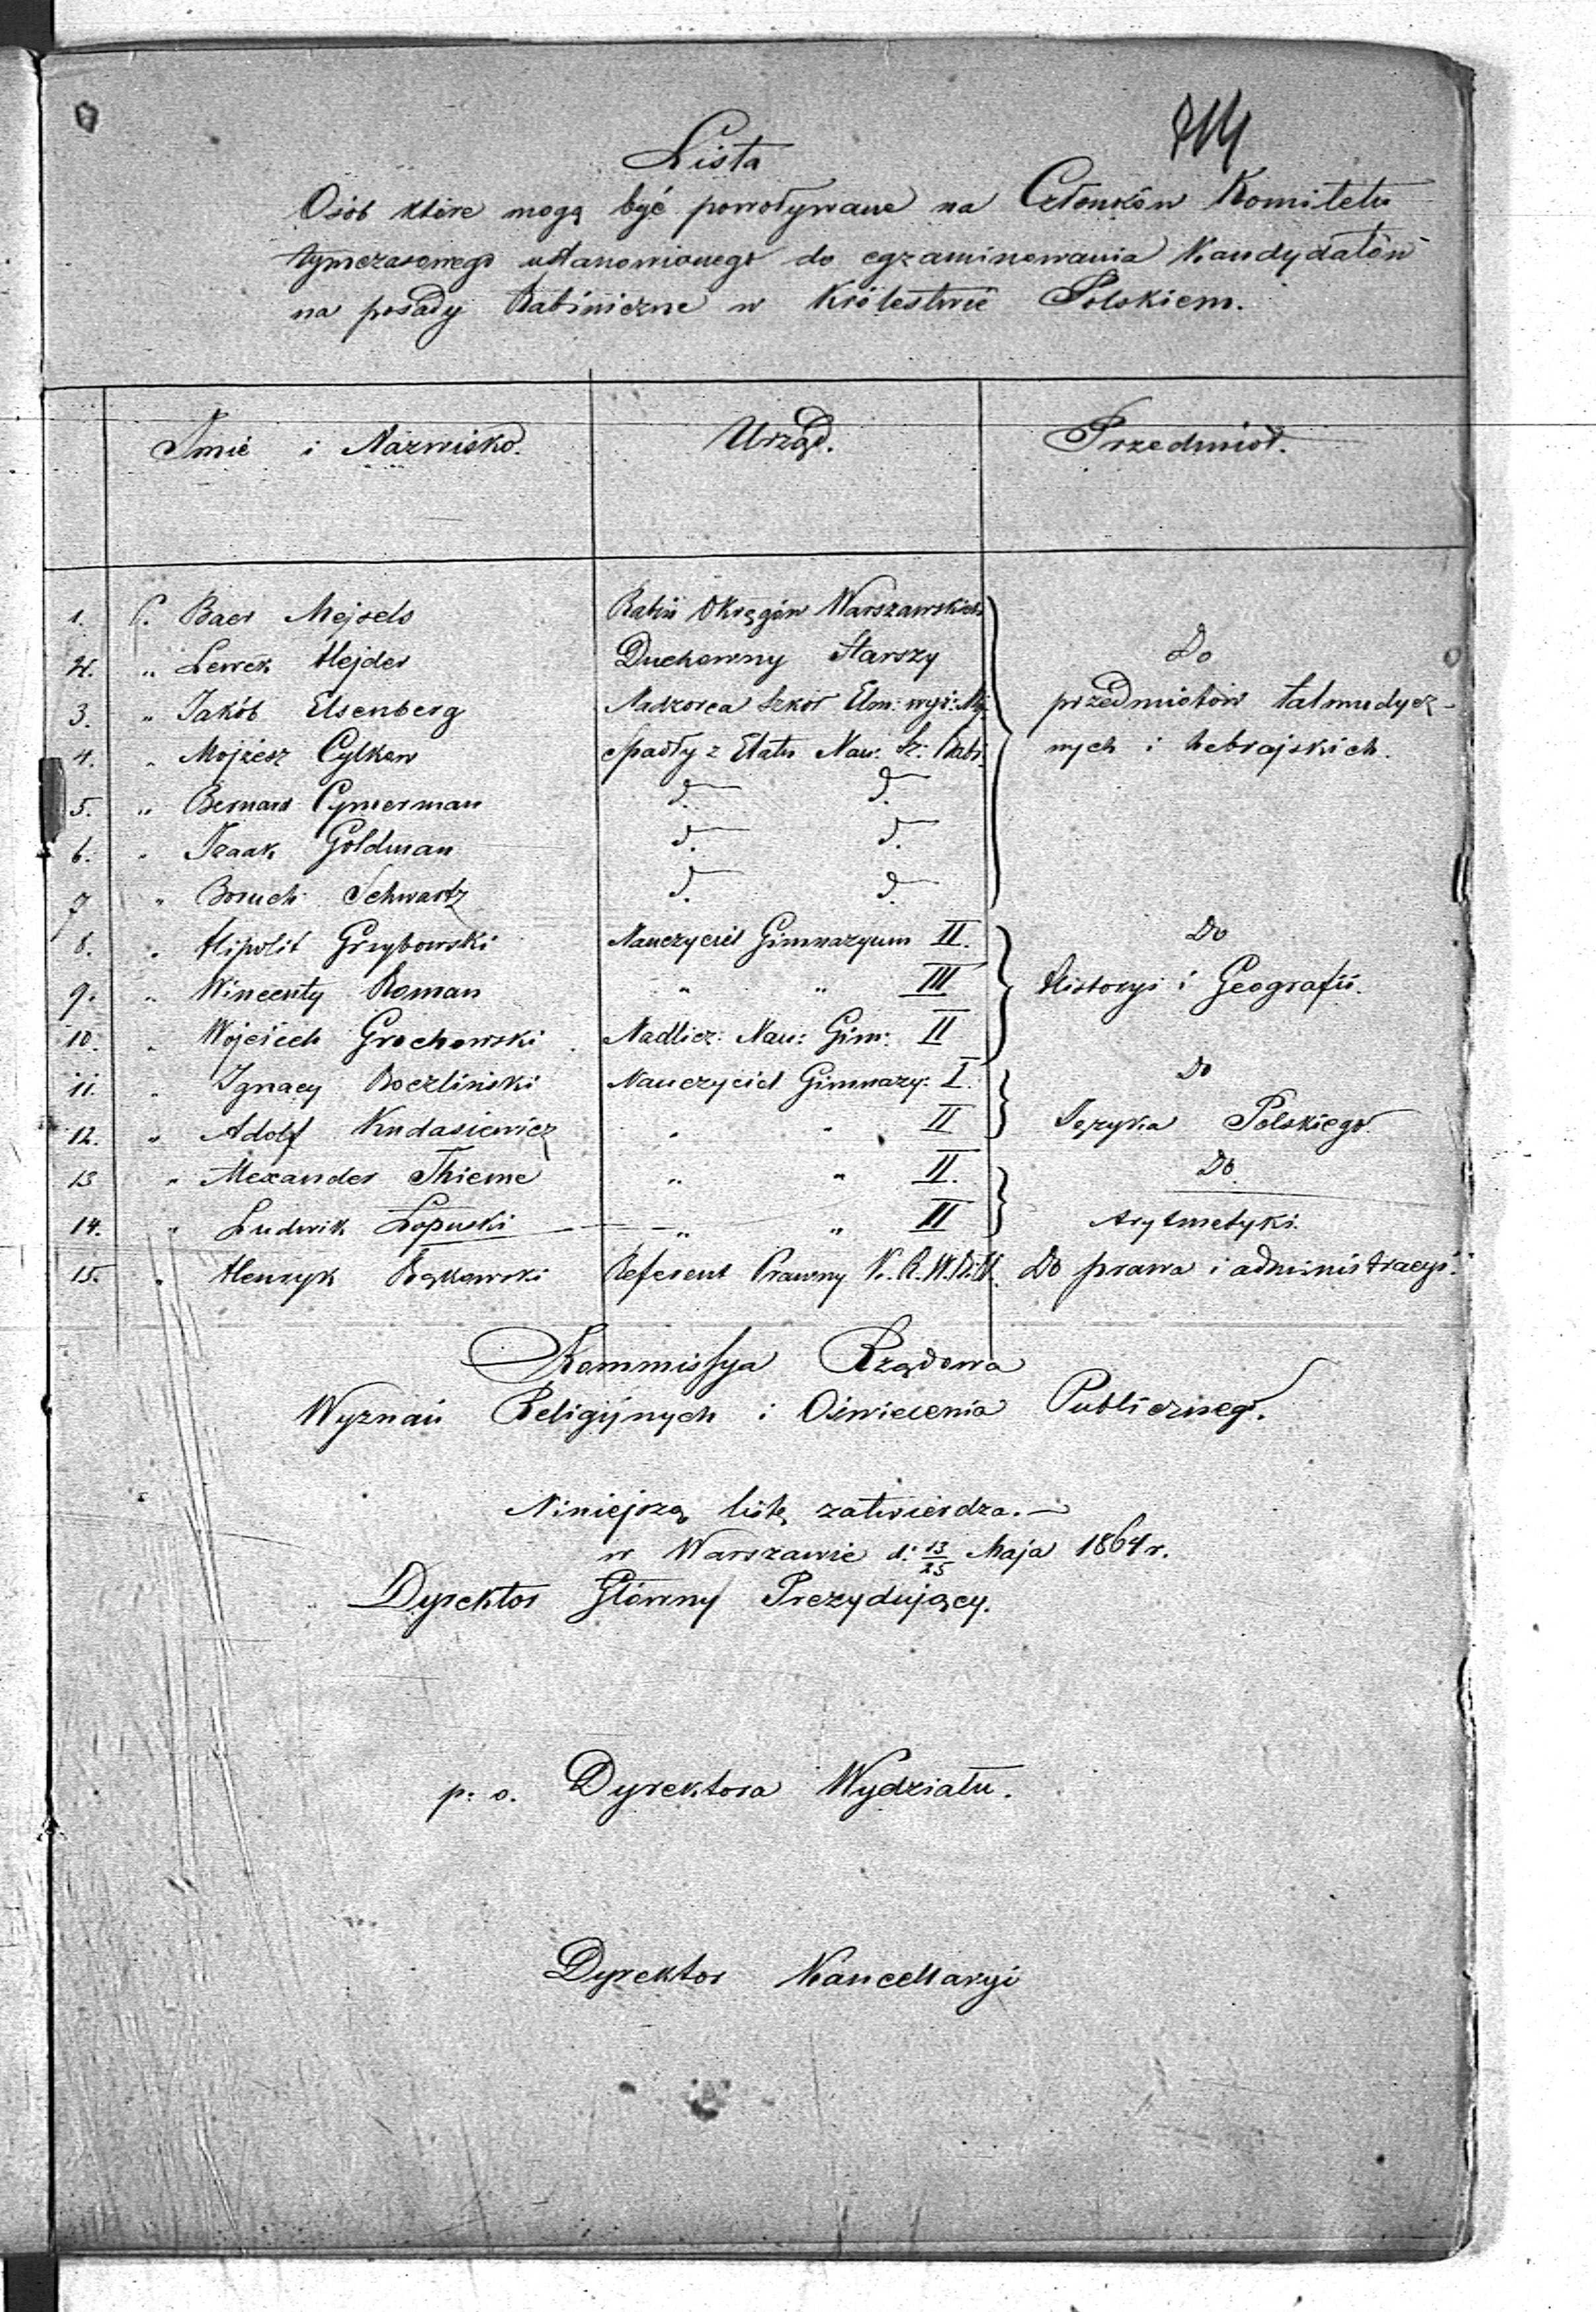 814
Lista
Osób które mogą być powoływane na Członków Komitetu
tymczasowego ustanowionego do egzaminowania Kandydatów
na posady Rabiniczne w Królestwie Polskiem.
Imie i Nazwisko. Urząd. Przedmiot.
1. P. Baer Mejsels Rabin Okręgów Warszawskich
2. " Lewek Hejder Duchowny Starszy Do
3. " Jakób Elsenberg Nadzorca Szkół Elem: wyz: Moj: przedmiotów talmudycz-
4. " Mojżesz Cylkow spadły z Etatu Nau: Sz: Rabi: nych i hebrajskich.
5. " Bernard Cymerman d. d.
6. " Izaak Goldman d. d.
7 " Boruch Schwartz d. d.
8. " Hipolit Grzybowski Nauczyciel Gimnazyum II. Do
9. " Wincenty Roman " " III Historyi i Geografii.
10. " Wojciech Grochowski Nadlicz: Nau: Gim: II
11. " Ignacy Boczliński Nauczyciel Gimnazy: I. Do
12. " Adolf Kudasiewicz " " II Języka Polskiego.
13 " Alexander Thieme " " II. Do
14. " Ludwik Łopuski " " III Arytmetyki.
15. " Henryk Bąkowski Referent Prawny K. R. W. Do prawa i administracyi.
Kommissya Rządowa
Wyznań Religijnych i Oświecenia Publicznego.
Niniejszą listę zatwierdza.—
w Warszawie d: 13/25 Maja 1864 r.
Dyrektor Główny Prezydujący.
p: o. Dyrektora Wydziału.
Dyrektor Kancellaryi